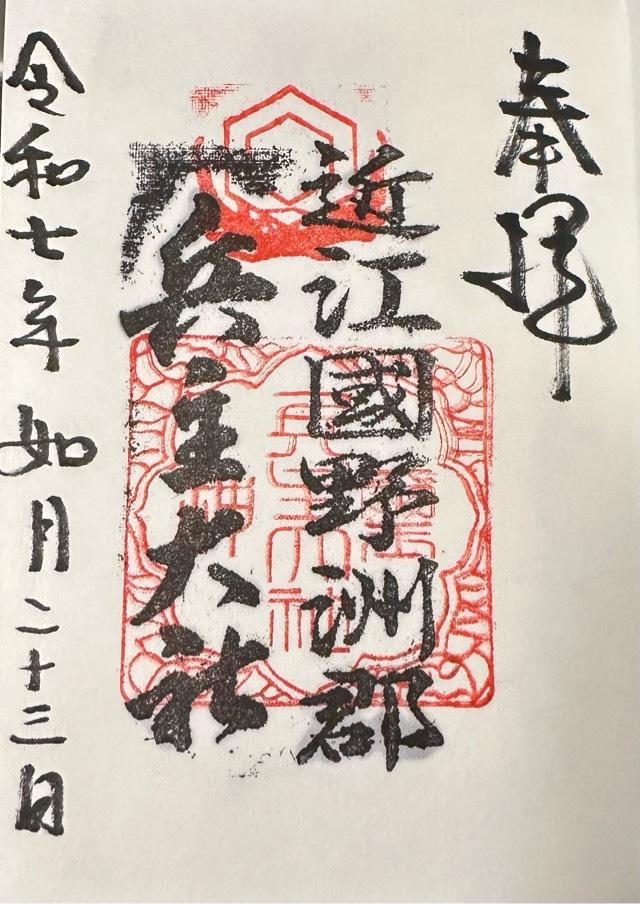 奉拝
近江國野洲郡
兵主大社
令和七年 如月二十三日